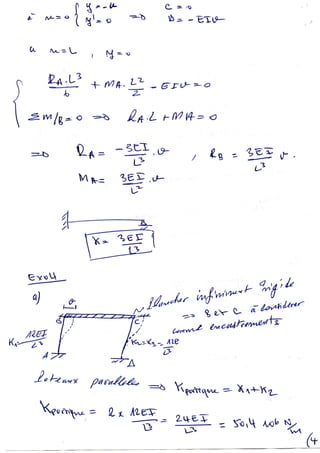 à x=0 { y=-u C=0
y'=0 => D=-EIv
à x=L, y=0
RA.L³/6 + MA.L²/2 - EIv=0
Σm/B=0 => RA.L+MA=0
=> RA= -3EI/L³ .v , RB = 3EI/L³ v.
MA= 3EI/L² .v
K= 3EI/L³
Exo4
a)
Plancher infiniment rigide
=> B et C à considérer
comme encastrements
B C
K1 12EI/L³
K2=K3=12E/L³
A D
Poteaux parallèles => Kportique = K1+K2
Kportique = 2x 12EI/L³ = 24EI/L³ = 50,4 106 N/m
(4